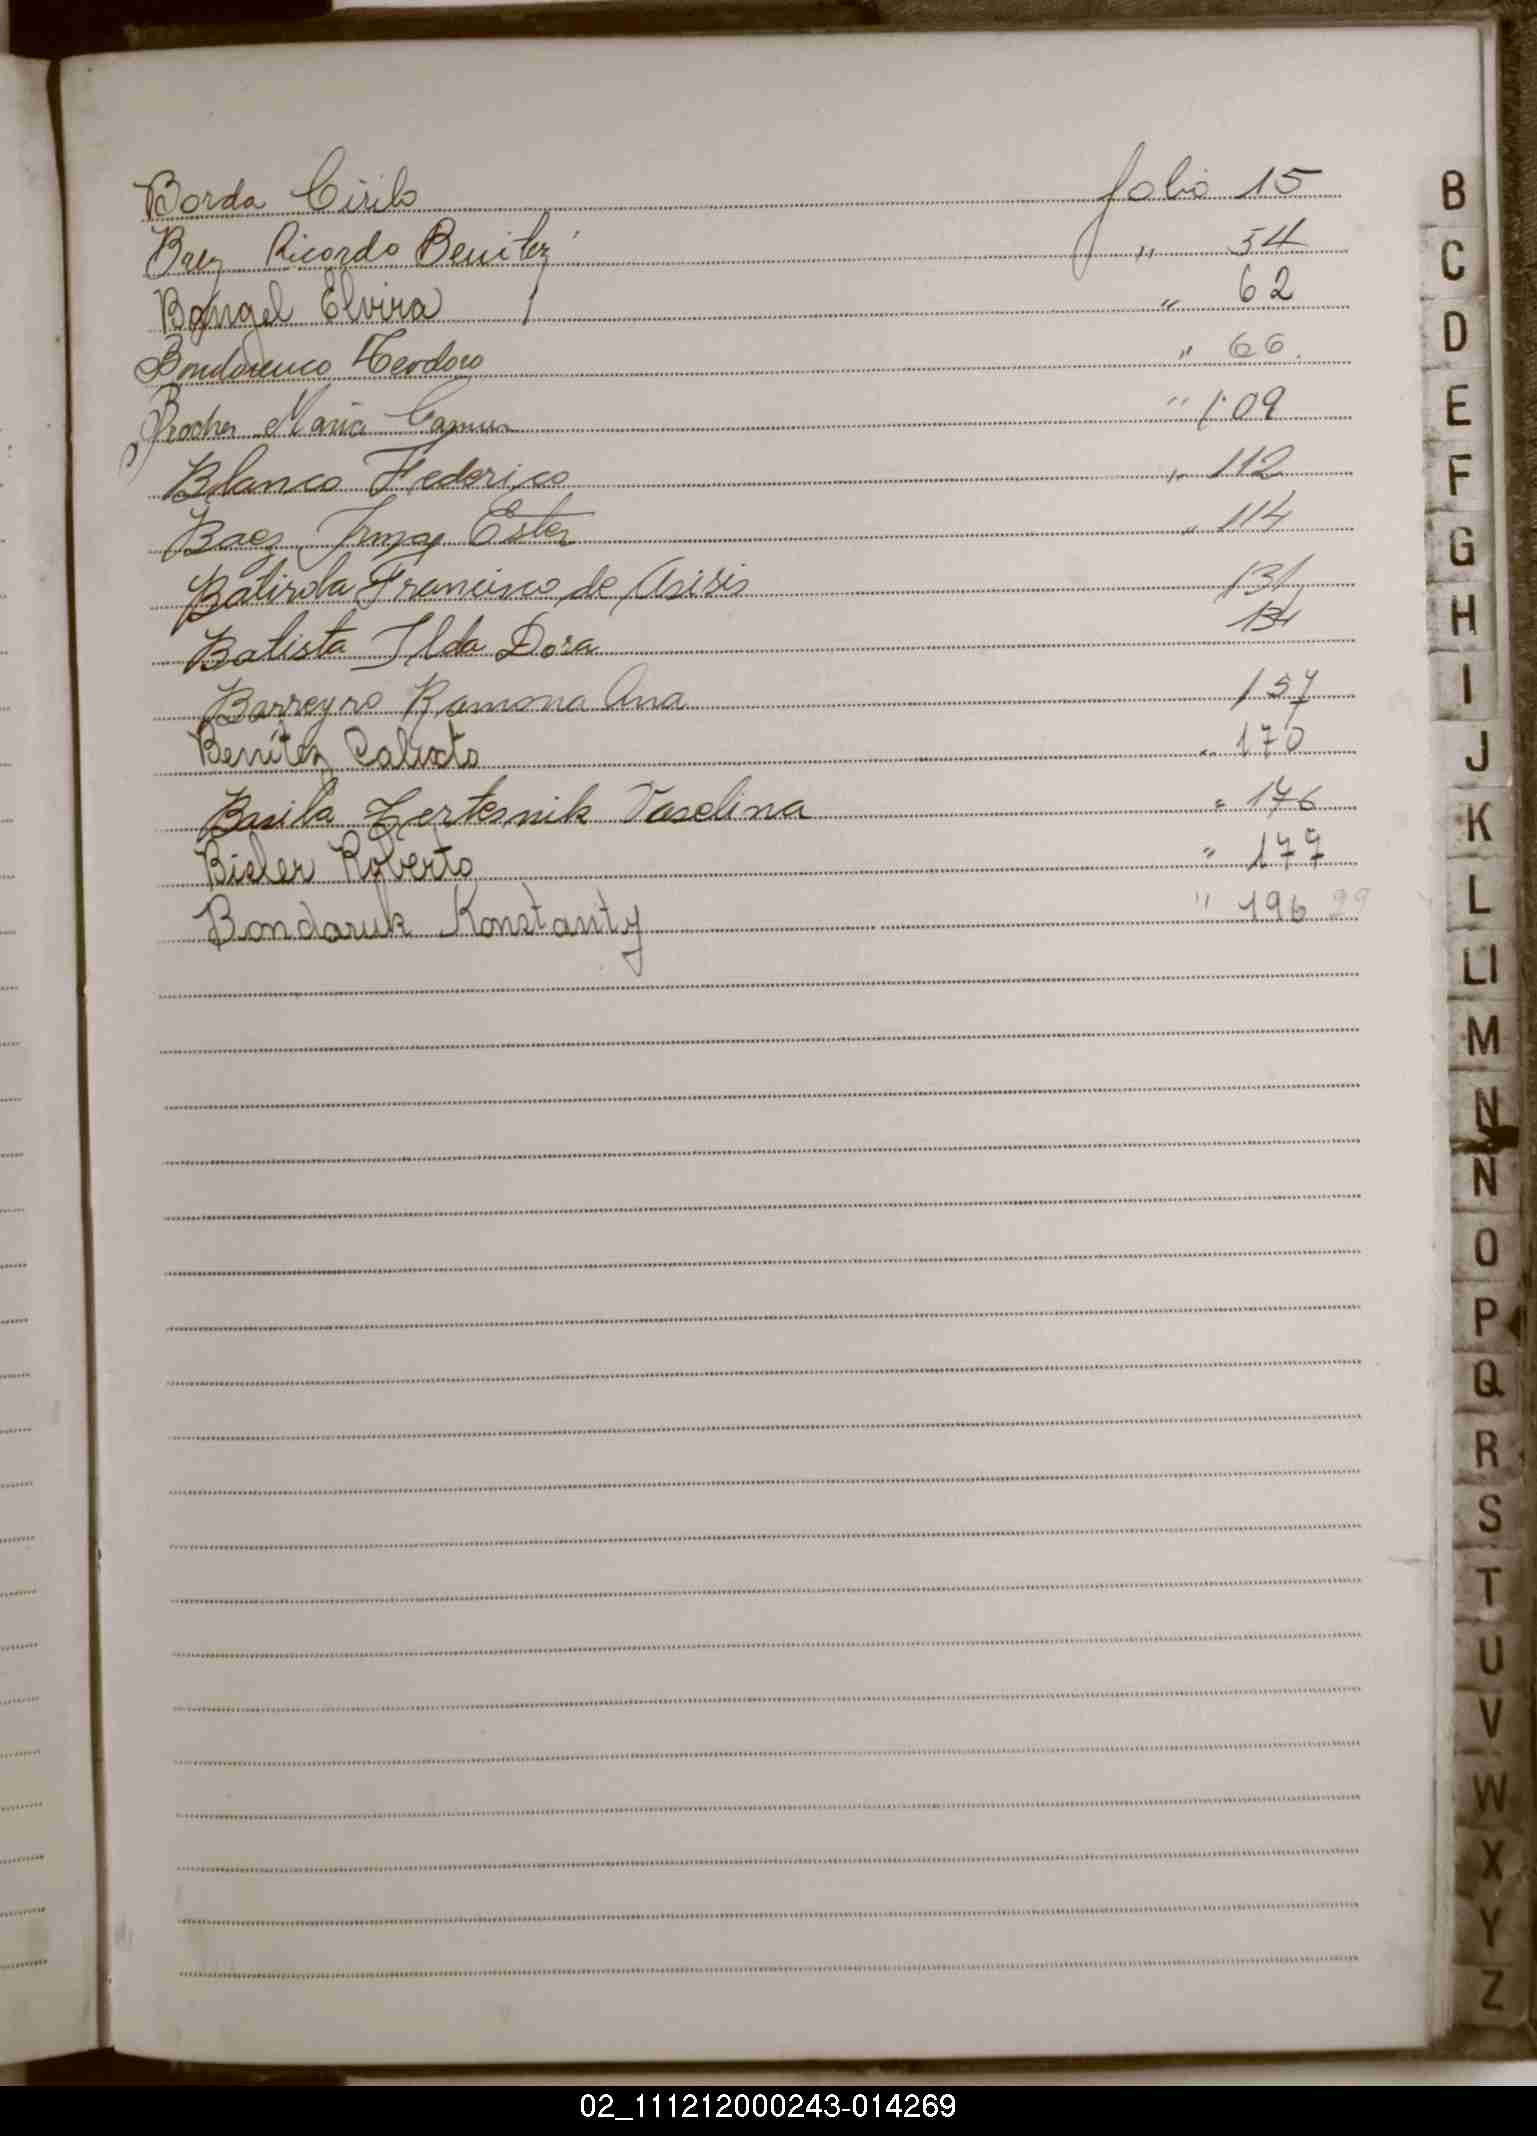 Borda Cirilo folio 15
Baez Ricardo Benitez " 54
Bangel Elvira " 62
Bondarenco Teodoro " 66.
Maria " 109
Blanco Federico " 112
Baez Irma Ester " 114
Batirola Francisco de Asisis 131
Batista Ilda Dora 134
Barreyro Ramona Ana 157
Benitez Calixto " 170
Basila Zertesnik Vaselina " 176
Bieler Roberto " 177
Bondaruk Konstanty " 196 99
B
C
D
E
F
G
H
I
J
K
L
Ll
M
N
N
O
P
Q
R
S
T
U
V
W
X
Y
Z
02_111212000243-014269